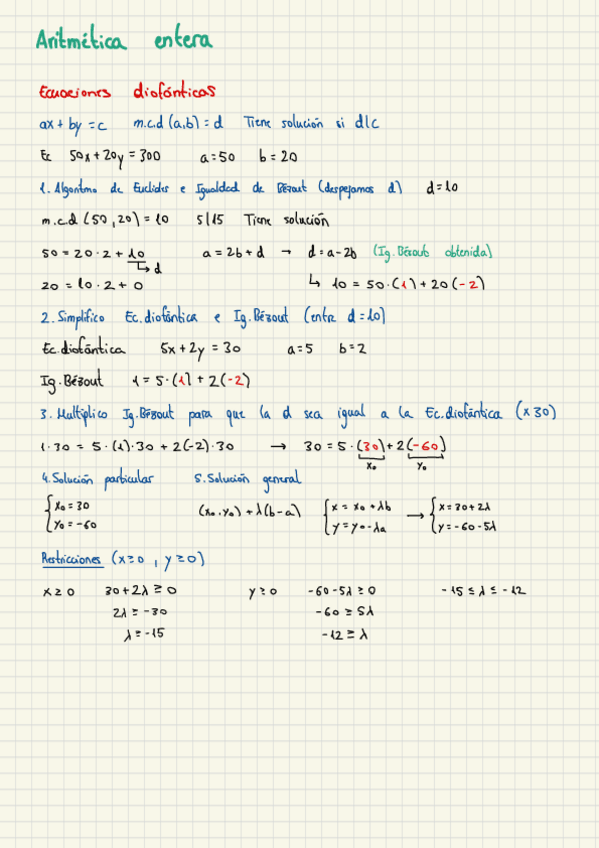 Aritmética entera
Ecuaciones diofánticas
ax + by = c m.c.d (a,b) = d Tiene solución si d|c
Ec 50x + 20y = 300 a = 50 b = 20
1. Algoritmo de Euclides e Igualdad de Bézout (despejamos d) d = 10
m.c.d (50,20) = 10 5|15 Tiene solución
50 = 20·2 + 10 a = 2b + d → d = a - 2b (Ig. Bézout obtenida)
↳ d
20 = 10·2 + 0 ↳ 10 = 50·(1) + 20(-2)
2. Simplifico Ec. diofántica e Ig. Bézout (entre d = 10)
Ec. diofántica 5x + 2y = 30 a = 5 b = 2
Ig. Bézout 1 = 5·(1) + 2(-2)
3. Multiplico Ig. Bézout para que la d sea igual a la Ec. diofántica (x 30)
1·30 = 5·(1)·30 + 2(-2)·30 → 30 = 5·(30) + 2(-60)
x₀ y₀
4. Solución particular 5. Solución general
{ x₀ = 30 (x₀, y₀) + λ(b - a) { x = x₀ + λb → { x = 30 + 2λ
y₀ = -60 y = y₀ - λa y = -60 - 5λ
Restricciones (x ≥ 0, y ≥ 0)
x ≥ 0 30 + 2λ ≥ 0 y ≥ 0 -60 - 5λ ≥ 0 -15 ≤ λ ≤ -12
2λ ≥ -30 -60 ≥ 5λ
λ ≥ -15 -12 ≥ λ